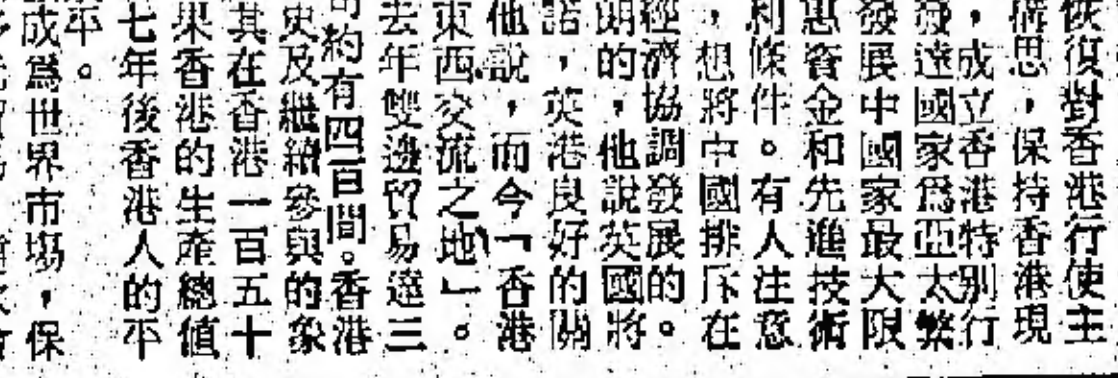 恢復對香港行使主
構思，保持香港現
，成立香港特別行
發達國家爲亞太繁
發展中國家最大限
惠資金和先進技術
利條件。有人注意
，想將中國排斥在
經濟協調發展的。
朗的，他說英國將
諧，英港良好的關
他說，而今「香港
東西交流之地」。
去年雙邊貿易達三
約有四百間。香港
史及繼續參與的象
其在香港一百五十
果香港的生產總值
七年後香港人的平
平。
成爲世界市場，保